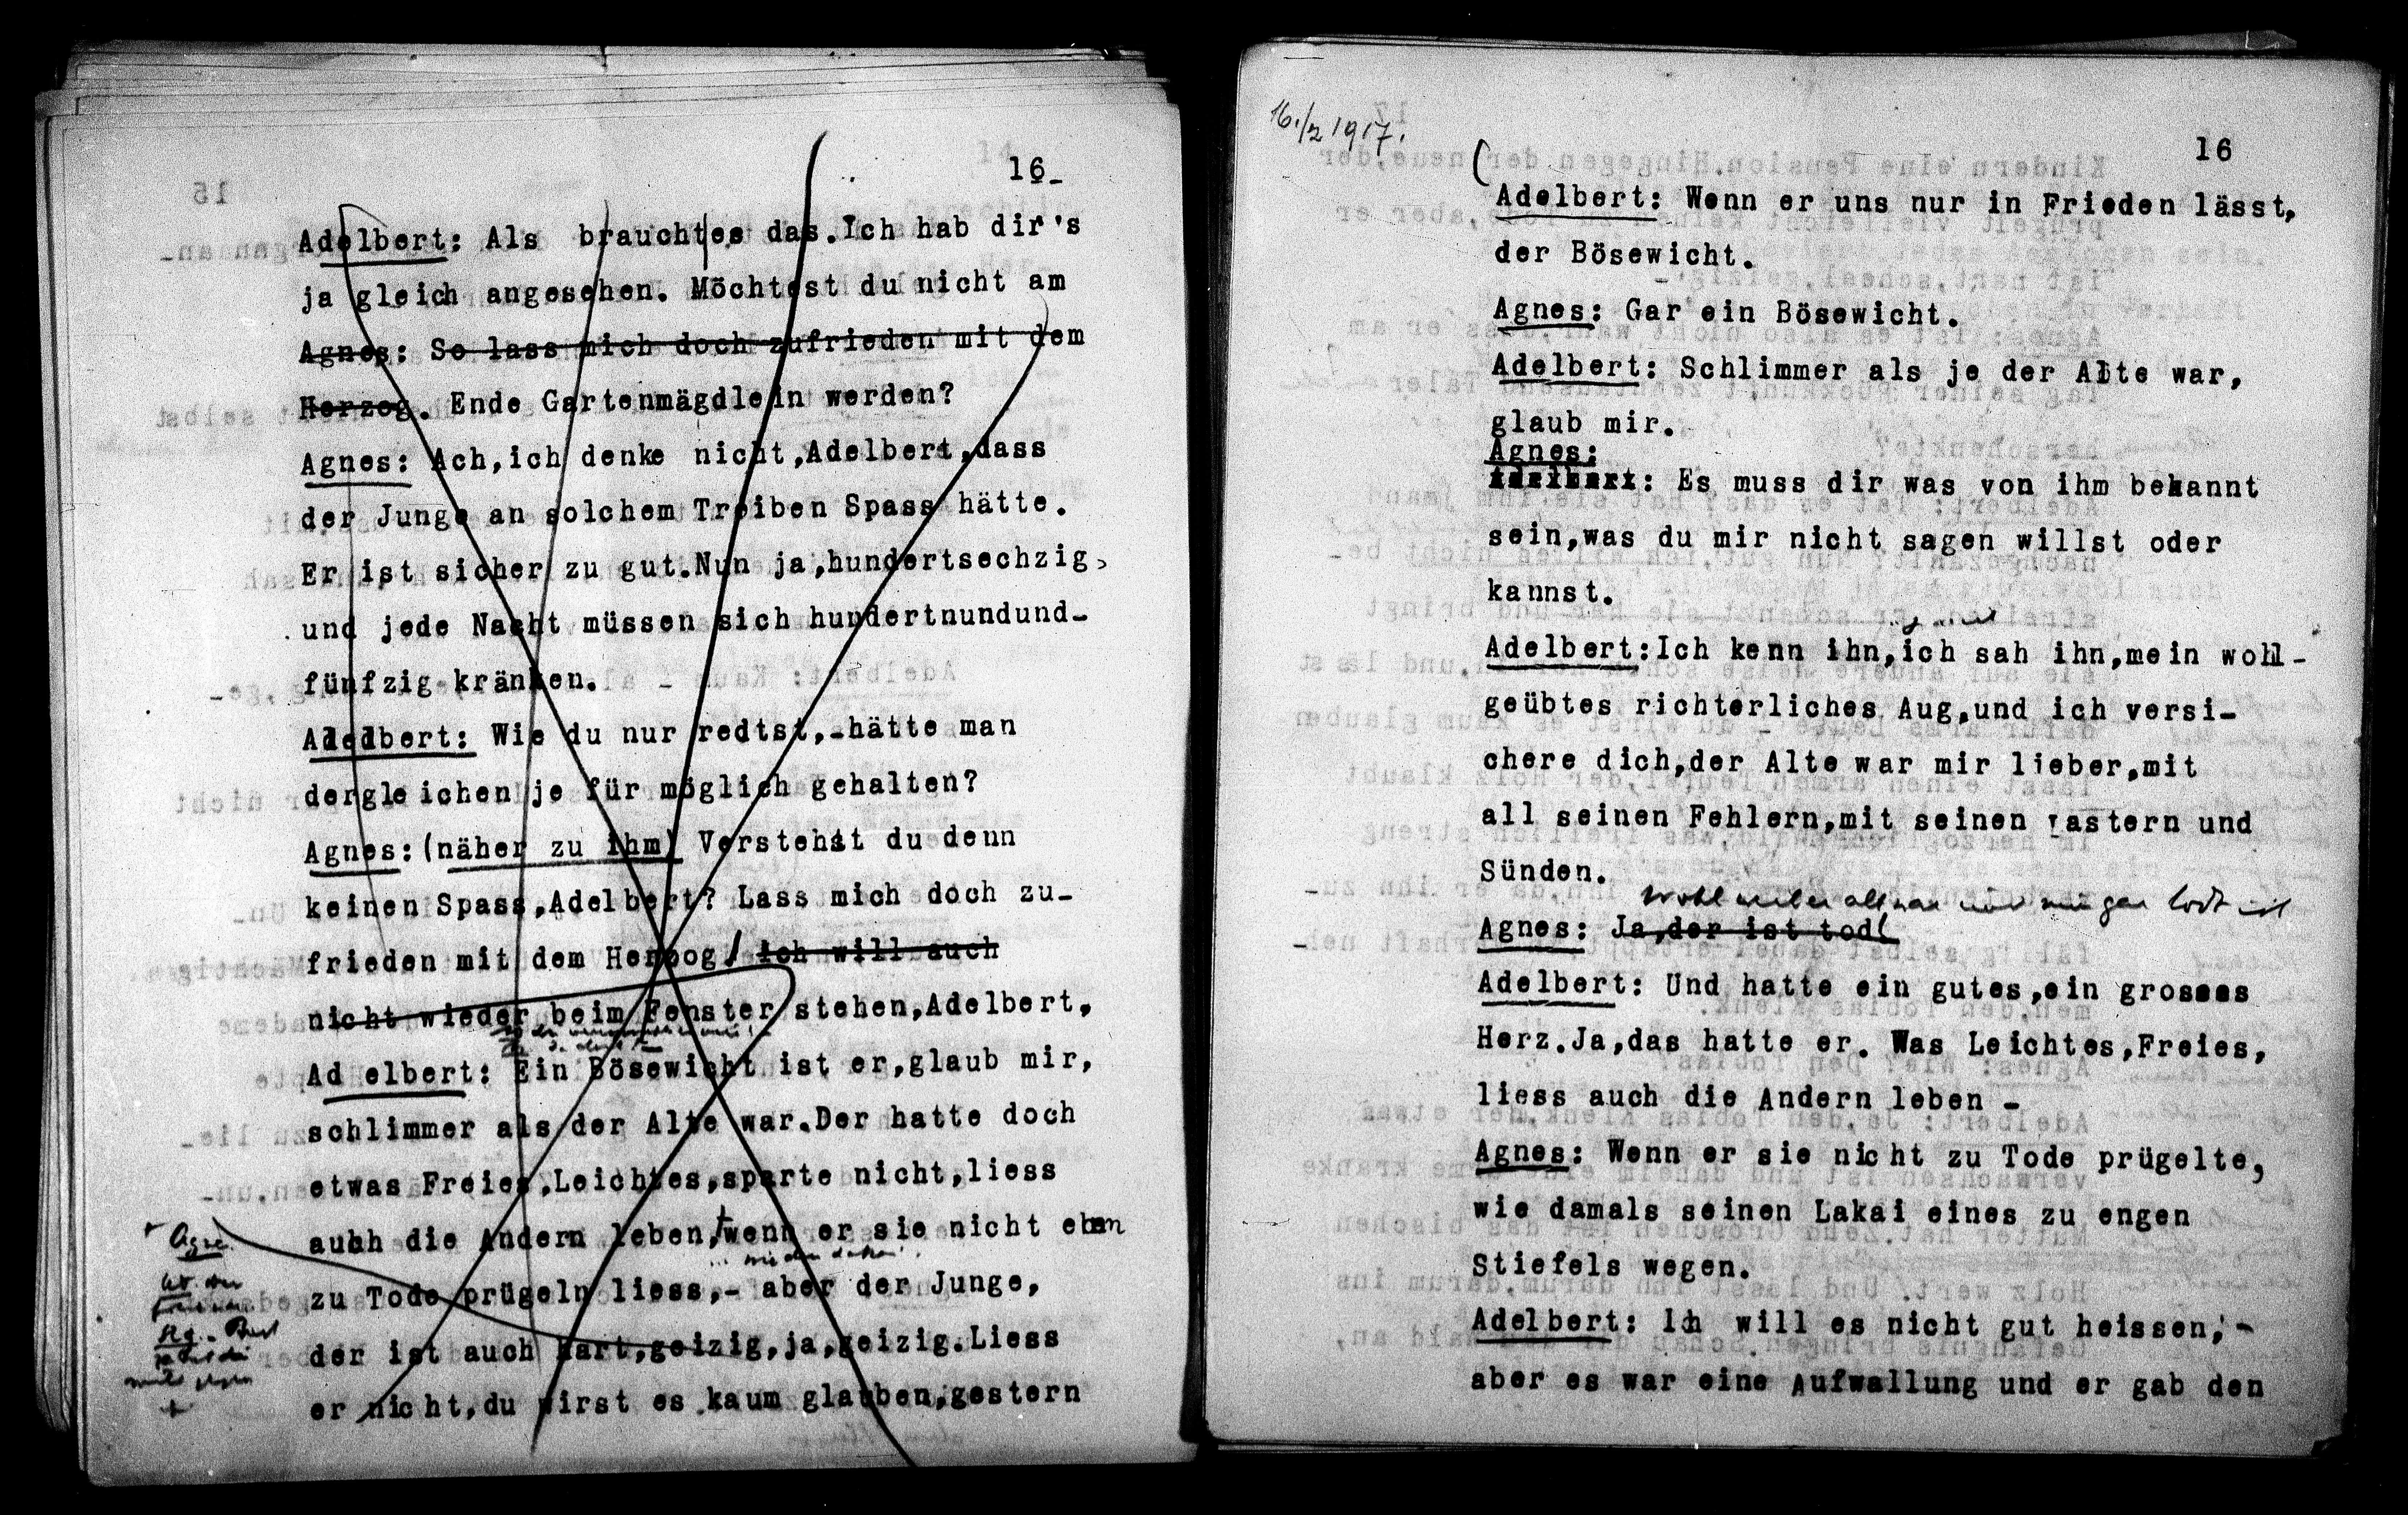 16_
Adelbert: Als brauchtes das.Ich hab dir's
ja gleich angesehen. Möchtest du nicht am
Agnes: So lass mich doch zufrieden mit dem
Herzog. Ende Gartenmägdlein werden?
Agnes: Ach,ich denke nicht,Adelbert,dass
der Junge an solchem Treiben Spass hätte.
Er ist sicher zu gut.Nun ja,hundertsechzig,
und jede Nacht müssen sich hundertnundund-
fünfzig kränken.
Adelbert: Wie du nur redtst,-hätte man
dergleichen je für möglich gehalten?
Agnes:(näher zu ihm) Verstehst du denn
keinen Spass,Adelbert? Lass mich doch zu-
frieden mit dem Herzog! ich will auch
nicht wieder beim Fenster stehen,Adelbert,
Adelbert: Ein Bösewicht ist er,glaub mir,
schlimmer als der Alte war.Der hatte doch
etwas Freies,Leichtes,sparte nicht,liess
auhh die Andern leben,wenn er sie nicht eben
zu Tode prügeln liess,- aber der Junge,
der ist auch hart,geizig,ja,geizig.Liess
er nicht,du wirst es kaum glauben,gestern
Agne.
16./2 1917.
16
Adelbert: Wenn er uns nur in Frieden lässt,
der Bösewicht.
Agnes: Gar ein Bösewicht.
Adelbert: Schlimmer als je der Alte war,
glaub mir.
Agnes:
Adelbert: Es muss dir was von ihm bekannt
sein,was du mir nicht sagen willst oder
kannst.
Adelbert:Ich kenn ihn,ich sah ihn,mein wohl-
geübtes richterliches Aug,und ich versi-
chere dich,der Alte war mir lieber,mit
all seinen Fehlern,mit seinen Lastern und
Sünden.
Wohl tot ist
Agnes: Ja,der ist tod!
Adelbert: Und hatte ein gutes,ein grosses
Herz.Ja,das hatte er. Was Leichtes,Freies,
liess auch die Andern leben -
Agnes: Wenn er sie nicht zu Tode prügelte,
wie damals seinen Lakai eines zu engen
Stiefels wegen.
Adelbert: Ich will es nicht gut heissen,-
aber es war eine Aufwallung und er gab den